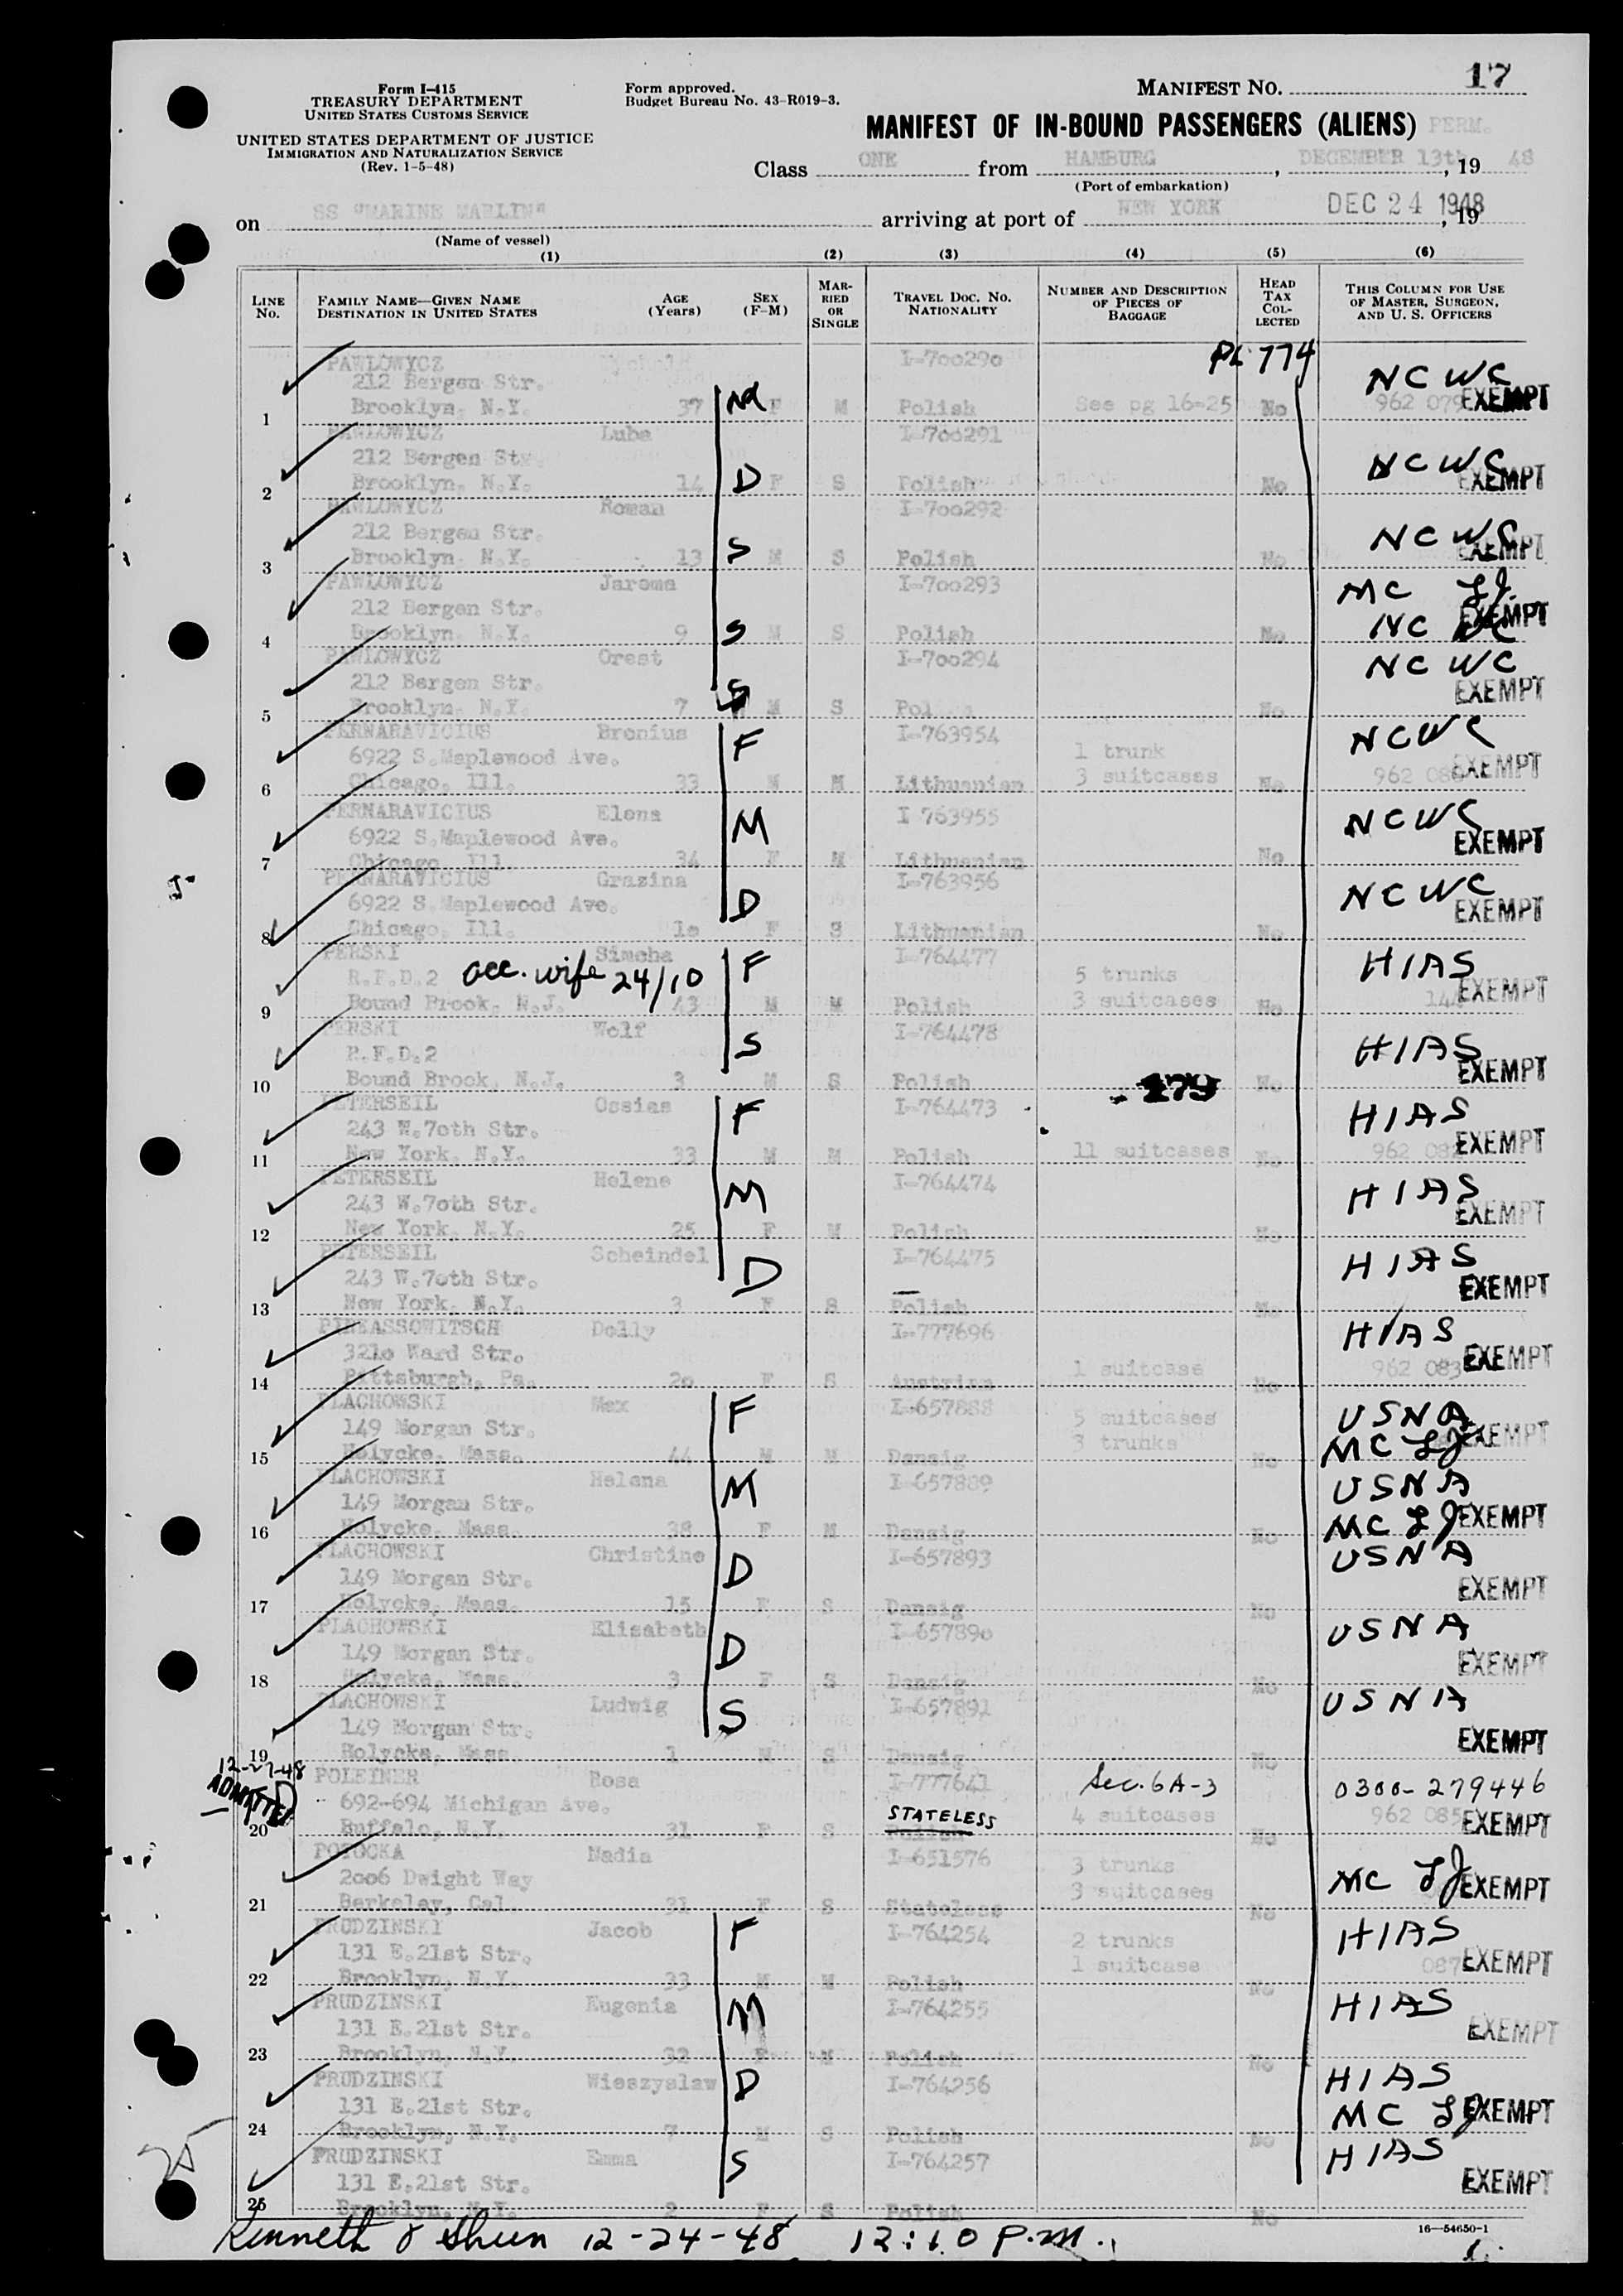 Form I-415
TREASURY DEPARTMENT
UNITED STATES CUSTOMS SERVICE
UNITED STATES DEPARTMENT OF JUSTICE
IMMIGRATION AND NATURALIZATION SERVICE
(Rev. 1-5-48)
Form approved.
Budget Bureau No. 43-R019-3.
MANIFEST NO. 17
MANIFEST OF IN-BOUND PASSENGERS (ALIENS) PERM.
Class ONE from HAMBURG, DECEMBER 13th, 19 48
(Port of embarkation)
on SS "MARINE MARLIN" arriving at port of NEW YORK DEC 24 1948, 19
(Name of vessel)
(1) (2) (3) (4) (5) (6)
LINE No. FAMILY NAME—GIVEN NAME DESTINATION IN UNITED STATES AGE (Years) SEX (F-M) MARRIED OR SINGLE TRAVEL DOC. No. NATIONALITY NUMBER AND DESCRIPTION OF PIECES OF BAGGAGE HEAD TAX COLLECTED THIS COLUMN FOR USE OF MASTER, SURGEON, AND U. S. OFFICERS
PAWLOWYCZ I-700290 PL 774 NCWC
212 Bergen Str.
1 Brooklyn, N.Y. 37 F M Polish See pg 16-25 No 962 079 EXEMPT
PAWLOWYCZ Luba I-700291
212 Bergen Str. NCWC
2 Brooklyn, N.Y. 14 D F S Polish No EXEMPT
PAWLOWYCZ Roman I-700292
212 Bergen Str. NCWC
3 Brooklyn, N.Y. 13 S M S Polish No EXEMPT
PAWLOWYCZ Jarema I-700293 MC LJ
212 Bergen Str.
4 Brooklyn, N.Y. 9 S M S Polish No EXEMPT
PAWLOWYCZ Orest I-700294 NCWC
212 Bergen Str.
5 Brooklyn, N.Y. 7 S M S No EXEMPT
PERNARAVICIUS Bronius I-763954 NCWC
6922 S.Maplewood Ave. F 1 trunk
6 Chicago, Ill. 33 M M Lithuanian 3 suitcases No 962 EXEMPT
PERNARAVICIUS Elena I 763955 NCWC
6922 S.Maplewood Ave. M
7 Chicago, Ill. 34 F M Lithuanian No EXEMPT
PERNARAVICIUS Grazina I-763956 NCWC
6922 S.Maplewood Ave. D
8 Chicago, Ill. 10 F S Lithuanian No EXEMPT
PERSKI Simcha I-764477 HIAS
R.F.D.2 acc. wife 24/10 F 5 trunks
9 Bound Brook, N.J. 43 M M Polish 3 suitcases No EXEMPT
PERSKI Wolf I-764478
R.F.D.2 S HIAS
10 Bound Brook, N.J. 3 M S Polish 179 No EXEMPT
PETERSEIL Ossias I-764473 HIAS
243 W.70th Str. F
11 New York, N.Y. 33 M M Polish 11 suitcases No 962 EXEMPT
PETERSEIL Helene I-764474 HIAS
243 W.70th Str. M
12 New York, N.Y. 25 F M Polish No EXEMPT
PETERSEIL Scheindel I-764475 HIAS
243 W.70th Str. D
13 New York, N.Y. 3 F S Polish No EXEMPT
PINKASSOWITSCH Dolly I-777696 HIAS
3210 Ward Str.
14 Pittsburgh, Pa. 20 F S Austrian 1 suitcase No 962 083 EXEMPT
PLACHOWSKI Max I-657888 USNA
149 Morgan Str. F 5 suitcases
15 Holycke, Mass. 44 M M Danzig 3 trunks No MC LJ EXEMPT
PLACHOWSKI Helena I-657889 USNA
149 Morgan Str. M
16 Holycke, Mass. 38 F M Danzig No MC LJ EXEMPT
PLACHOWSKI Christine I-657893 USNA
149 Morgan Str. D
17 Holycke, Mass. 15 F S Danzig No EXEMPT
PLACHOWSKI Elisabeth I-657890 USNA
149 Morgan Str. D
18 Holycke, Mass. 3 F S Danzig No EXEMPT
PLACHOWSKI Ludwig I-657891 USNA
149 Morgan Str. S
19 Holycke, Mass. 1 M S Danzig No EXEMPT
12-27-48
ADMITTED
POLEINER Rosa I-777641 Sec. 6A-3 0300-279446
692-694 Michigan Ave. STATELESS 4 suitcases
20 Buffalo, N.Y. 31 F S Polish No 962 085 EXEMPT
POTOCKA Nadia I-651576 3 trunks
2006 Dwight Way 3 suitcases MC LJ EXEMPT
21 Berkeley, Cal. 31 F S Stateless No
PRUDZINSKI Jacob I-764254 HIAS
131 E.21st Str. F 2 trunks
22 Brooklyn, N.Y. 33 M M Polish 1 suitcase No 087 EXEMPT
PRUDZINSKI Eugenia I-764255 HIAS
131 E.21st Str. M
23 Brooklyn, N.Y. 32 F M Polish No EXEMPT
PRUDZINSKI Wieszyslaw I-764256 HIAS
131 E.21st Str. D MC LJ EXEMPT
24 Brooklyn, N.Y. 7 M S Polish No
PRUDZINSKI Emma I-764257 HIAS
131 E.21st Str. S EXEMPT
25 Brooklyn, N.Y. 2 F S Polish No
Kenneth 12-24-48 12:10 P.M.
16—54650-1